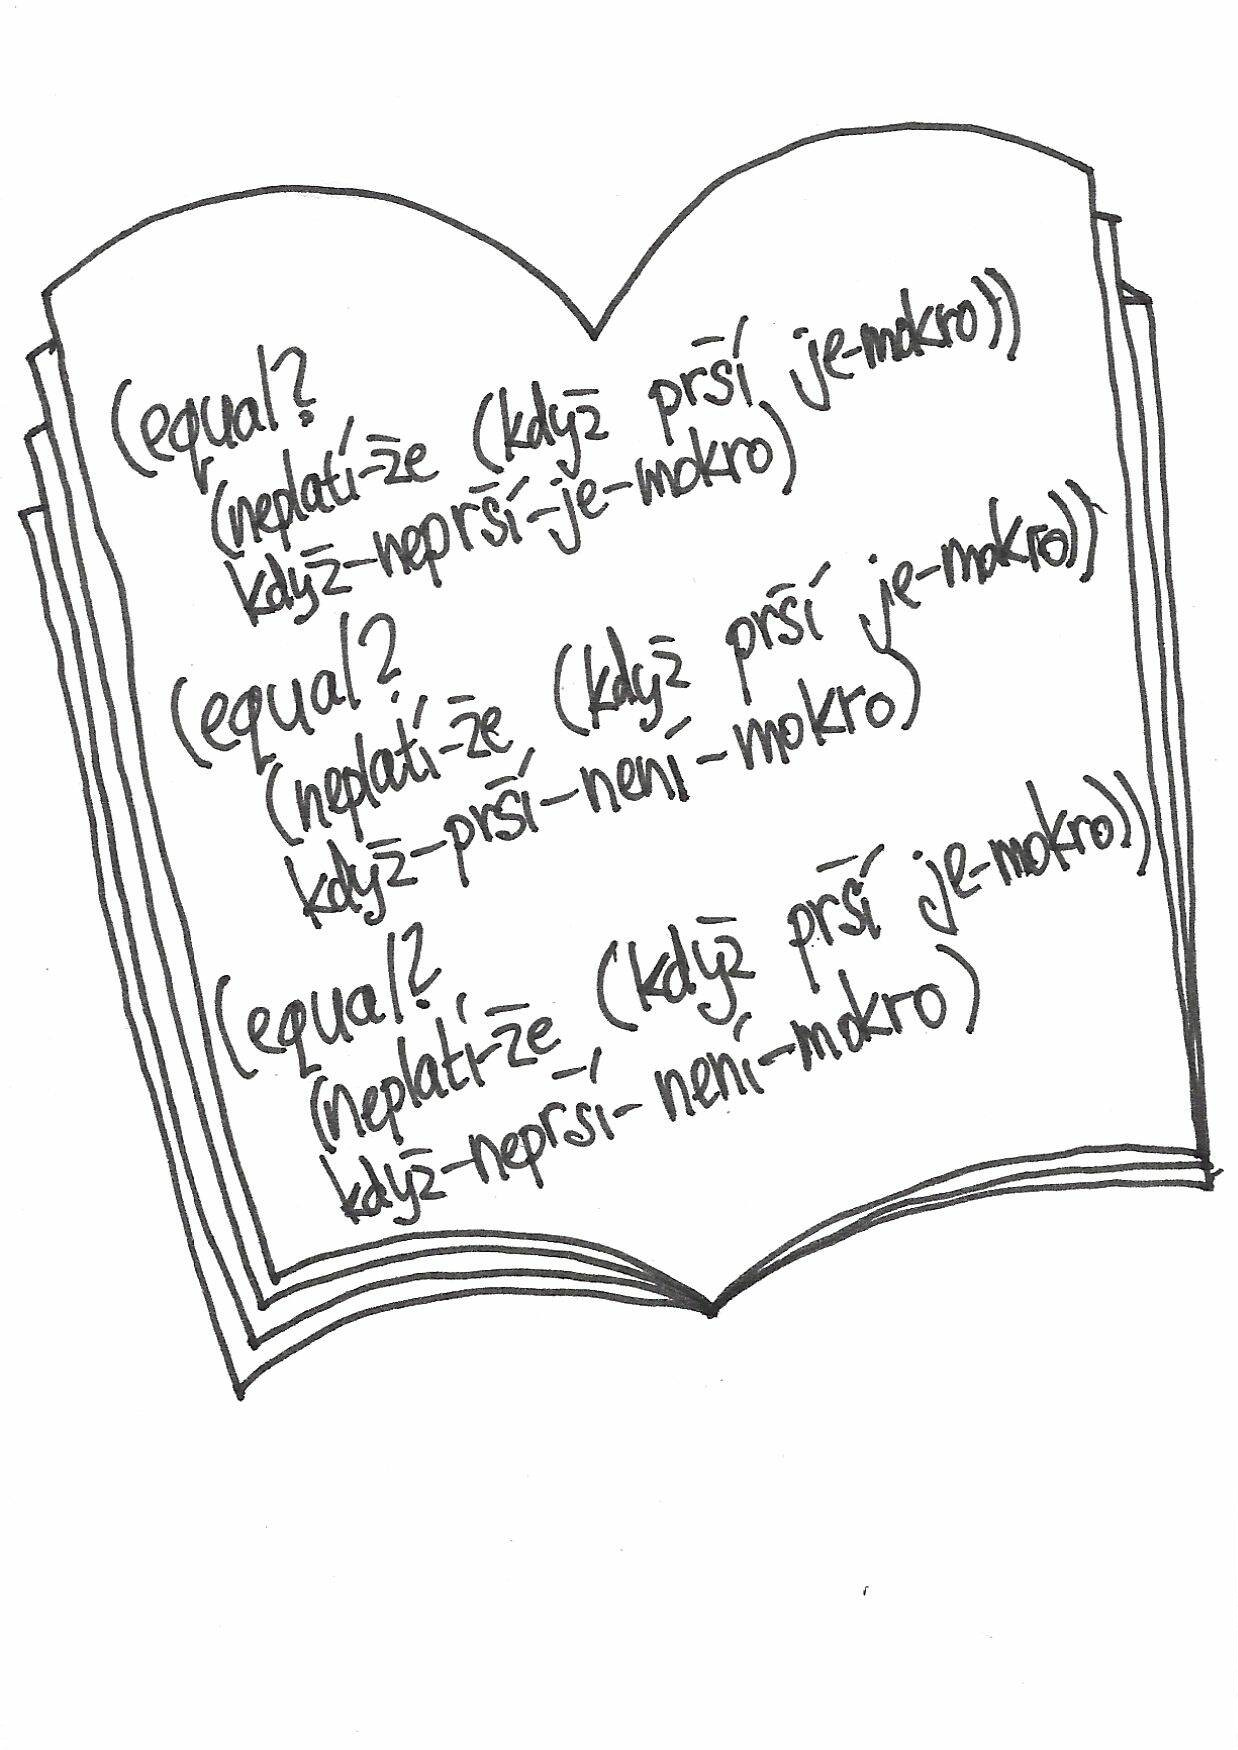 (equal?
(neplatí-že (když prší je-mokro))
když-neprší-je-mokro)
(equal?
(neplatí-že (když prší je-mokro))
když-prší-není-mokro)
(equal?
(neplatí-že (když prší je-mokro))
když-neprší-není-mokro)